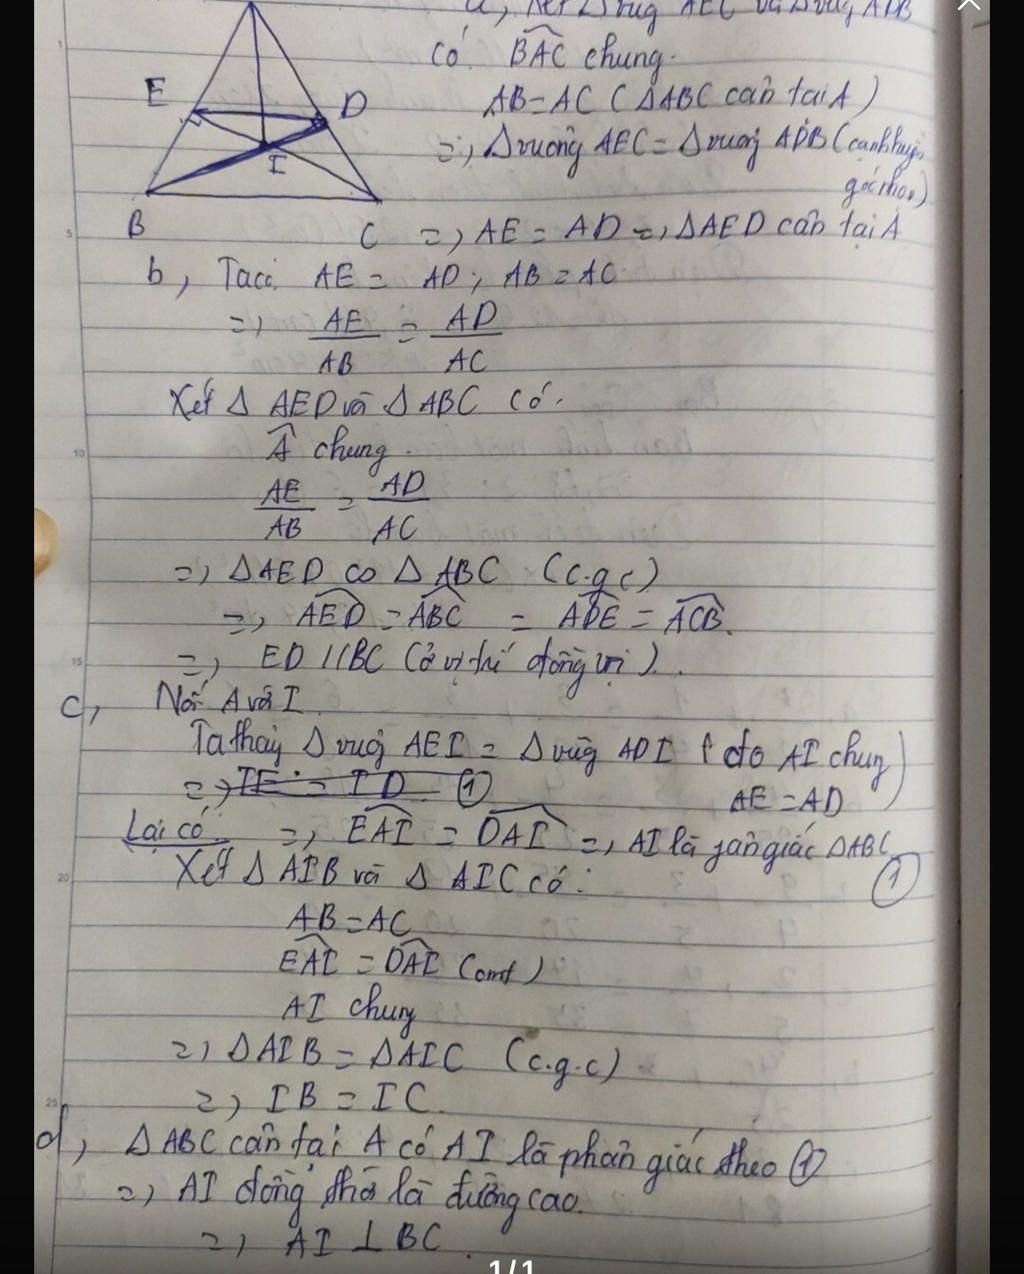 a, Xét Δ vuông AEC và Δ vuông ADB
có BAC chung.
AB = AC (ΔABC cân tại A)
=> Δ vuông AEC = Δ vuông ADB (cạnh huyền
góc nhọn)
E
D
I
B
C
=> AE = AD => ΔAED cân tại A
b, Ta có AE = AD; AB = AC
=> AE/AB = AD/AC
Xét Δ AED và Δ ABC có:
Â chung.
AE/AB = AD/AC
=> ΔAED ∽ ΔABC (c.g.c)
=> AED = ABC = ADE = ACB.
=> ED // BC (ở vị trí đồng vị).
c, Nối A và I.
Ta thấy Δ vuông AEI = Δ vuông ADI (do AI chung
AE = AD)
=> IE = ID ①
Lại có => EAI = DAI => AI là phân giác ΔABC
①
Xét Δ AIB và Δ AIC có:
AB = AC
EAI = DAI (cmt)
AI chung
=> ΔAIB = ΔAIC (c.g.c)
=> IB = IC.
d, ΔABC cân tại A có AI là phân giác theo ①
=> AI đồng thời là đường cao.
=> AI ⊥ BC.
1/1